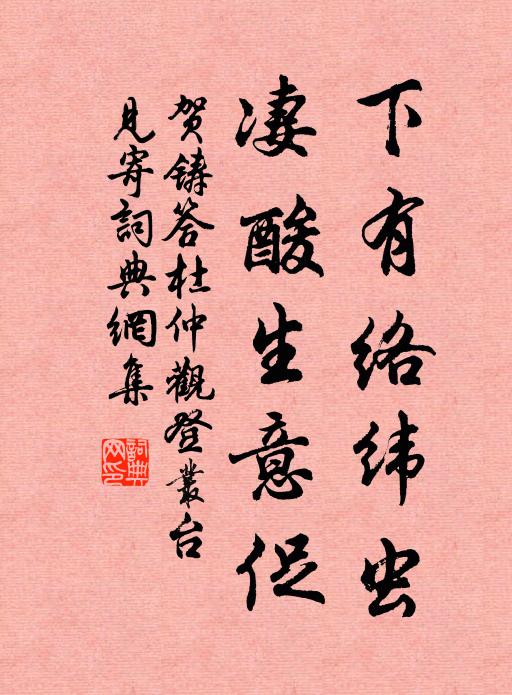 下有络纬虫
凄酸生意促
贺铸答杜仲观登丛台
见寄词典网集
词典网印